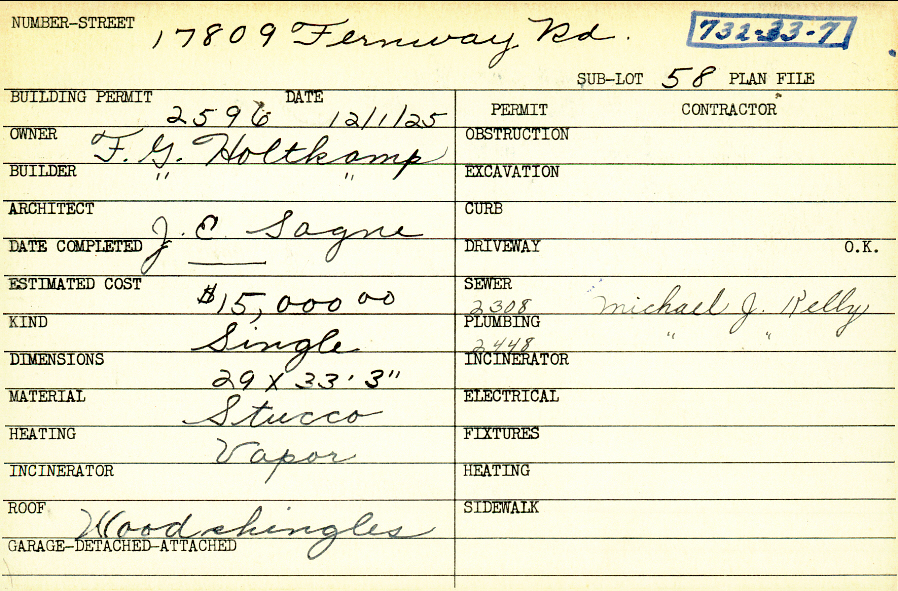 NUMBER-STREET 17809 Fernway Rd. 732-33-7
SUB-LOT 58 PLAN FILE
BUILDING PERMIT 2596 DATE 12/1/25
PERMIT CONTRACTOR
OWNER F. G. Holtkamp
OBSTRUCTION
BUILDER " "
EXCAVATION
ARCHITECT J. E. Sagne
CURB
DATE COMPLETED —
DRIVEWAY O.K.
ESTIMATED COST $15,000 00
SEWER 2308 Michael J. Kelly
KIND Single
PLUMBING 2448 " "
DIMENSIONS 29 X 33'3"
INCINERATOR
MATERIAL Stucco
ELECTRICAL
HEATING Vapor
FIXTURES
INCINERATOR
HEATING
ROOF Wood shingles
SIDEWALK
GARAGE-DETACHED-ATTACHED